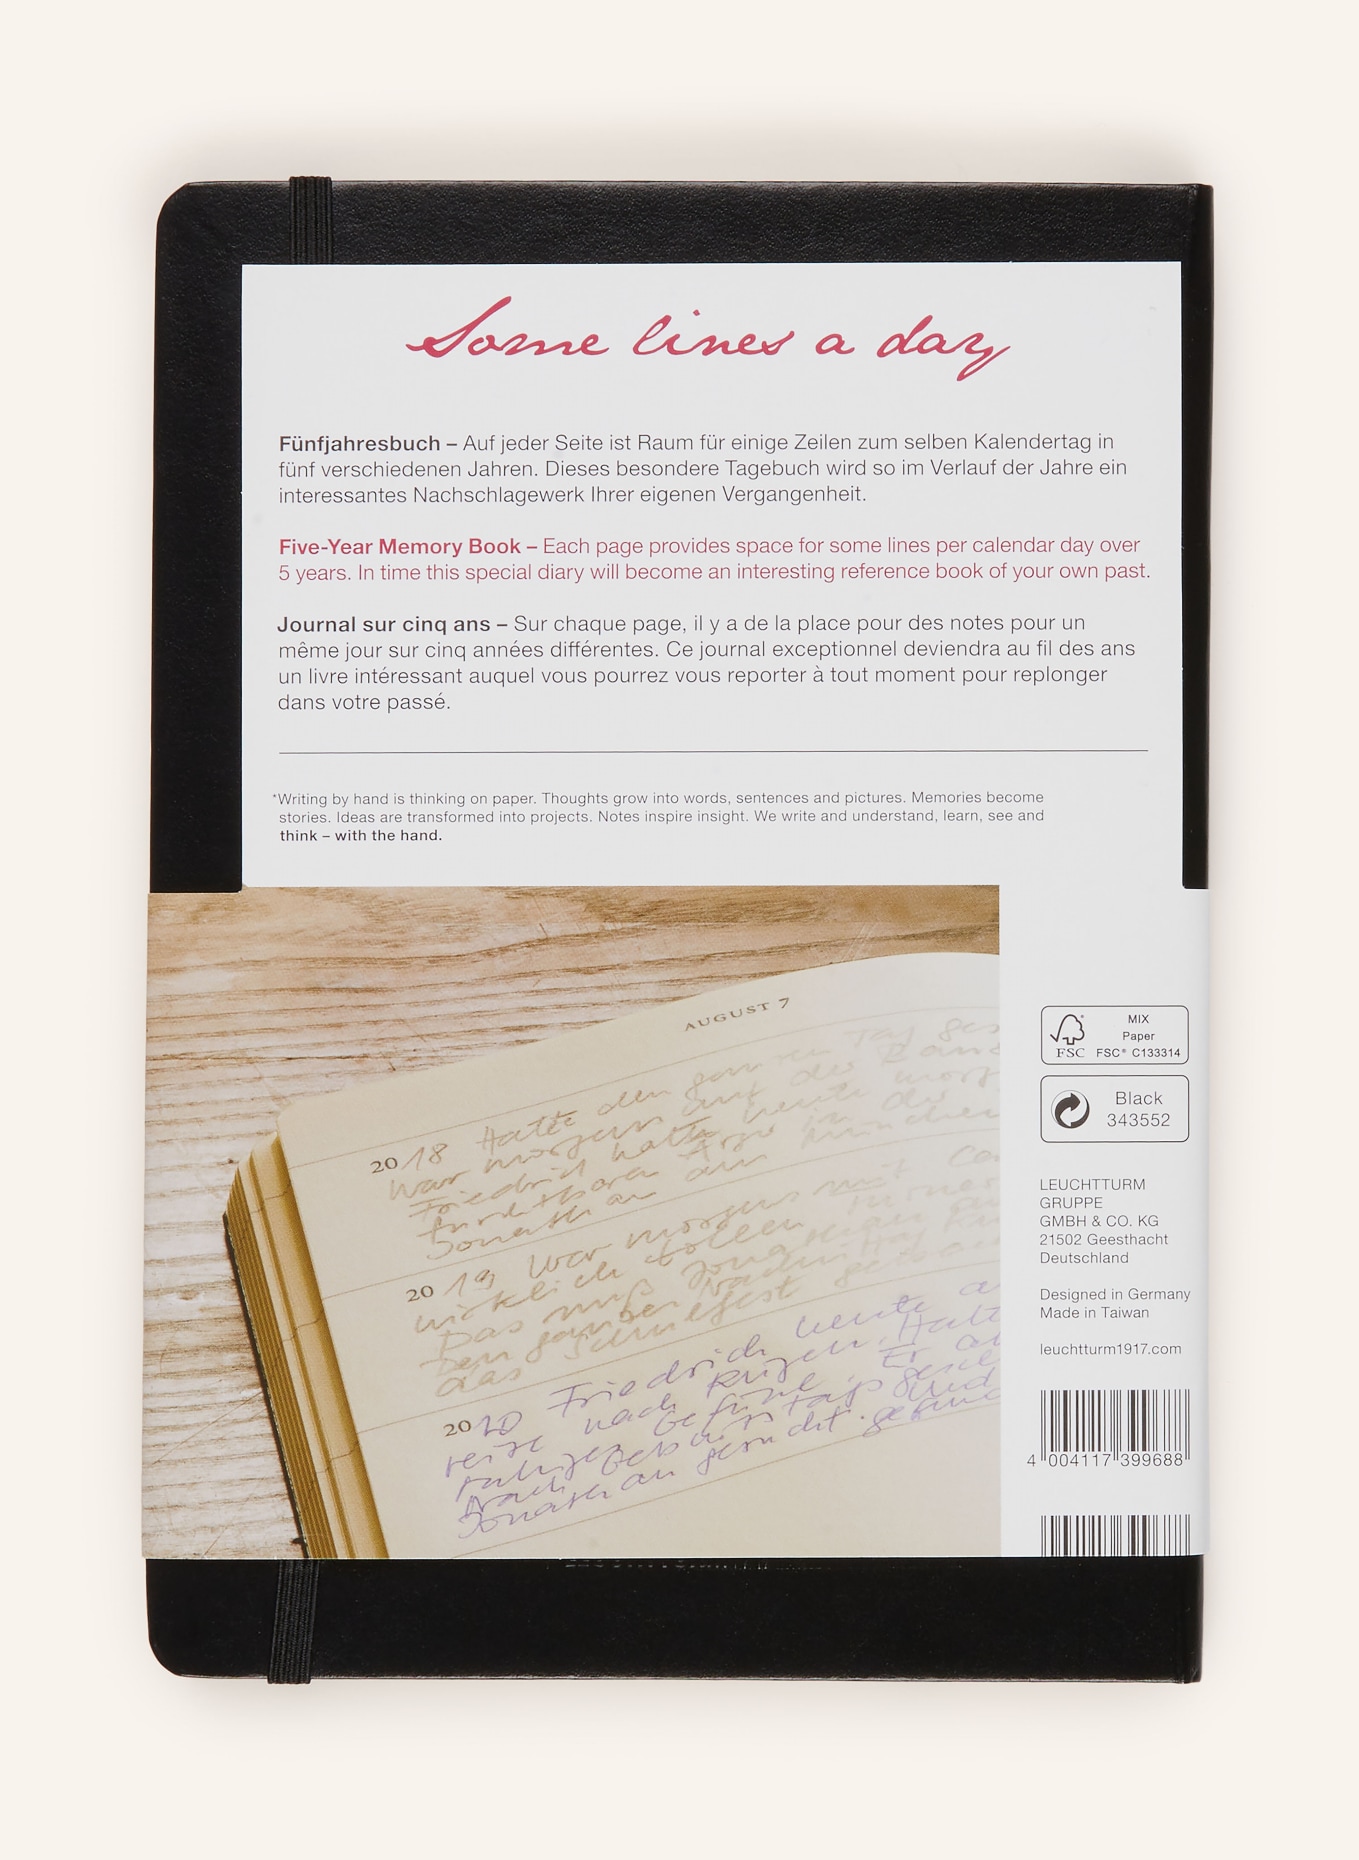 Some lines a day
Fünfjahresbuch – Auf jeder Seite ist Raum für einige Zeilen zum selben Kalendertag in
fünf verschiedenen Jahren. Dieses besondere Tagebuch wird so im Verlauf der Jahre ein
interessantes Nachschlagewerk Ihrer eigenen Vergangenheit.
Five-Year Memory Book – Each page provides space for some lines per calendar day over
5 years. In time this special diary will become an interesting reference book of your own past.
Journal sur cinq ans – Sur chaque page, il y a de la place pour des notes pour un
même jour sur cinq années différentes. Ce journal exceptionnel deviendra au fil des ans
un livre intéressant auquel vous pourrez vous reporter à tout moment pour replonger
dans votre passé.
*Writing by hand is thinking on paper. Thoughts grow into words, sentences and pictures. Memories become
stories. Ideas are transformed into projects. Notes inspire insight. We write and understand, learn, see and
think – with the hand.
AUGUST 7
2018 Hatte den ganzen Tag
war morgens auf
Friedrich hatte heute
Jonathan am
2019 War morgens mit
wirklich tollen
Das muß
das Schulfest
2020 Friedrich heute
reise nach Rügen. Hatte
Jonathan
MIX
Paper
FSC
FSC® C133314
Black
343552
LEUCHTTURM
GRUPPE
GMBH & CO. KG
21502 Geesthacht
Deutschland
Designed in Germany
Made in Taiwan
leuchtturm1917.com
4 004117 399688